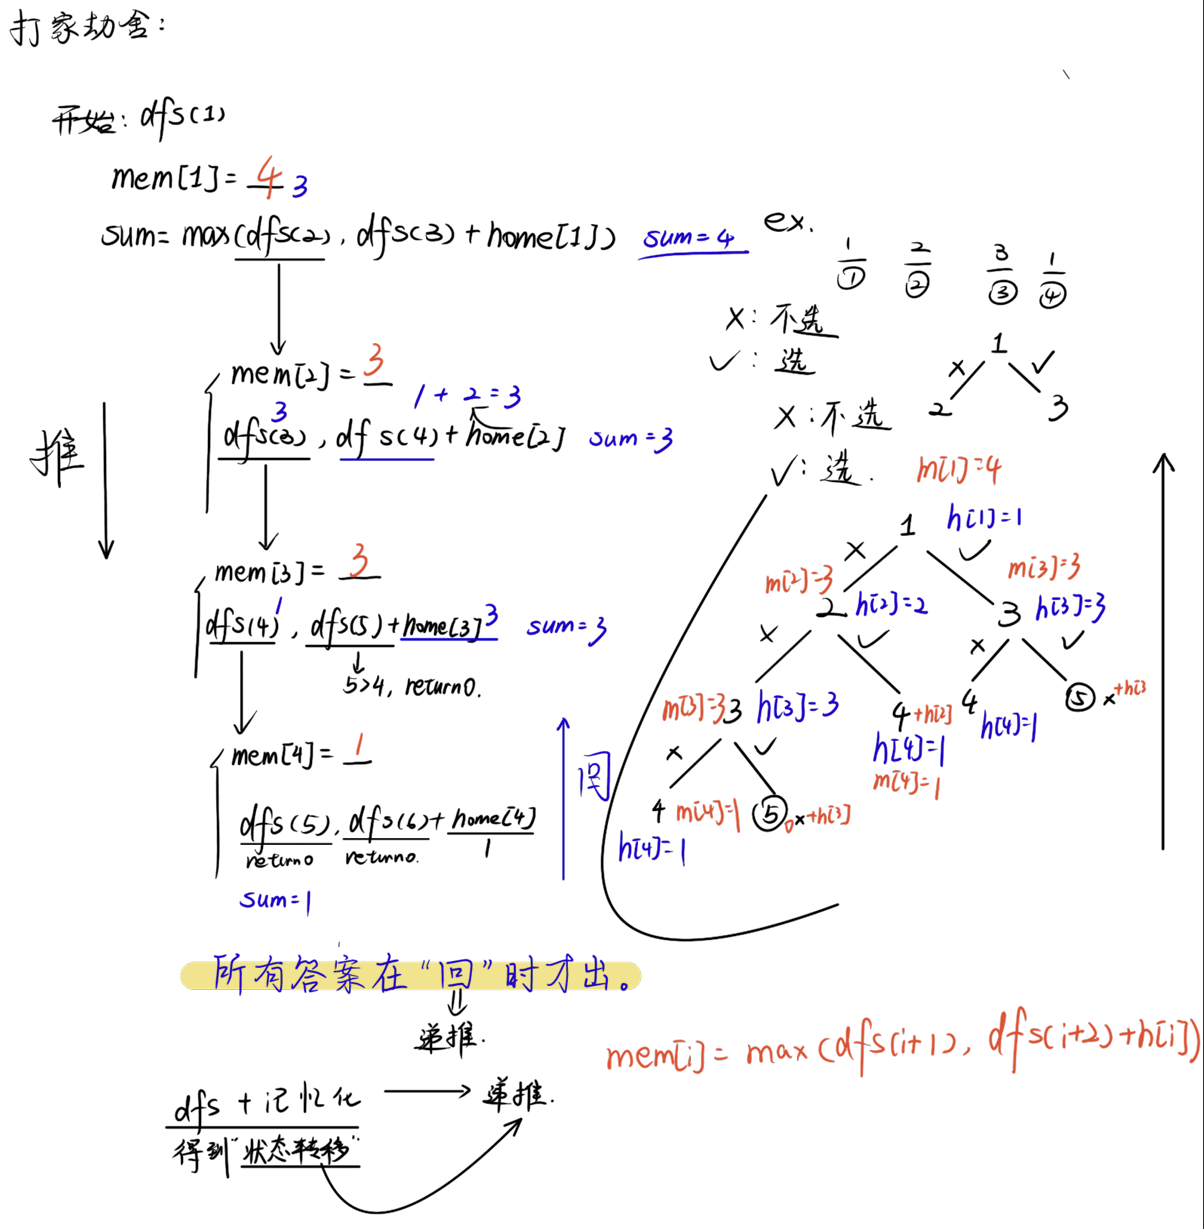 打家劫舍：
开始：dfs(1)
mem[1]= 4 3
sum= max(dfs(2), dfs(3)+home[1]) sum=4
mem[2]= 3
3 1+2=3
dfs(3), dfs(4)+home[2] sum=3
推
mem[3]= 3
1 3
dfs(4), dfs(5)+home[3] sum=3
5>4, return0.
mem[4]= 1
dfs(5), dfs(6)+home[4]
return0 return0. 1
sum=1
回
ex.
1 2 3 1
① ② ③ ④
x: 不选
✓: 选
1
x ✓
2 3
x: 不选
✓: 选.
m[1]=4
1 h[1]=1
x ✓
m[2]=3 m[3]=3
2 h[2]=2 3 h[3]=3
x ✓ x ✓
m[3]=3 3 h[3]=3 4+h[2] 4 ⑤ x+h[3
h[4]=1 h[4]=1
m[4]=1
x ✓
4 m[4]=1 ⑤ 0x+h[3]
h[4]=1
所有答案在“回”时才出。
递推.
mem[i]= max(dfs(i+1), dfs(i+2)+h[i])
dfs+记忆化 → 递推.
得到“状态转移”